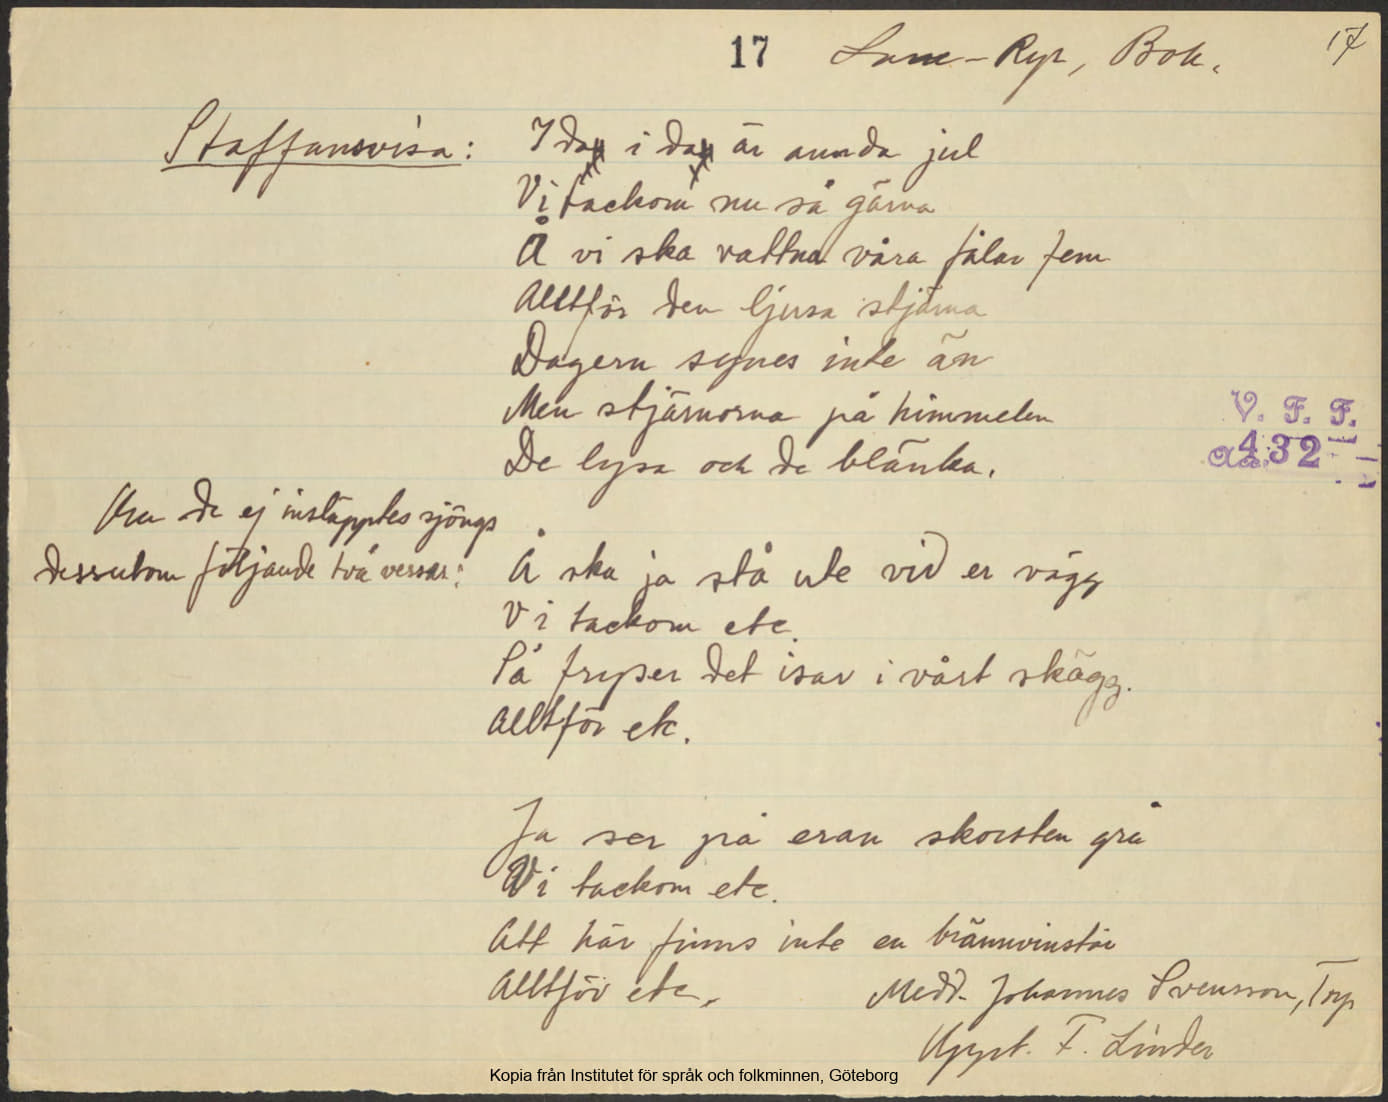 17 Lane-Ryr, Boh. 17
Staffansvisa: I dag i dag är annda jul
Vi tackom nu så gärna
Å vi ska vattna våra fålar fem
Alltför den ljusa stjärna
Dagern synes inte än
Men stjärnorna på himmelen
De lysa och de blänka.
V. F. F.
432
Om de ej insläpptes sjöngs
dessutom följande två verser:
Å ska ja stå ute vid er vägg
Vi tackom etc.
Så fryser det isar i vårt skägg.
Alltför etc.
Ja ser på eran skorsten grå
Vi tackom etc.
Att här finns inte en brännvinstår
Alltför etc.
Medd. Johannes Svensson, Torp
Uppt. F. Linder
Kopia från Institutet för språk och folkminnen, Göteborg